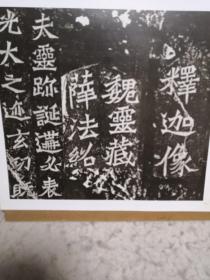 釋迦像
魏靈藏
薛法紹
夫靈跡誕遘必表
光大之迹玄功既